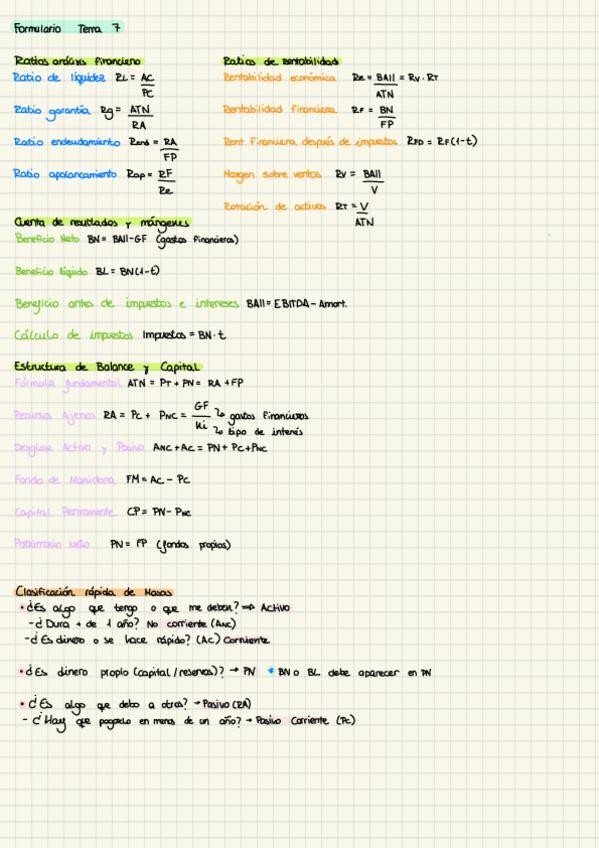 Formulario Tema 7
Ratios análisis financiero
Ratio de líquidez RL = AC / PC
Ratio garantía Rg = ATN / RA
Ratio endeudamiento Rend = RA / FP
Ratio apalancamiento Rap = RF / Re
Ratios de rentabilidad
Rentabilidad económica Re = BAII / ATN = Rv · RT
Rentabilidad financiera RF = BN / FP
Rent financiera después de impuestos RFD = RF(1-t)
Margen sobre ventas Rv = BAII / V
Rotación de activos RT = V / ATN
Cuenta de resultados y márgenes
Beneficio Neto BN = BAII - GF (gastos financieros)
Beneficio líquido BL = BN(1-t)
Beneficio antes de impuestos e intereses BAII = EBITDA - Amort.
Cálculo de impuestos Impuestos = BN · t
Estructura de Balance y Capital
Fórmula fundamental ATN = PT + PN = RA + FP
Recursos Ajenos RA = Pc + PNC = GF / Ki → gastos financieros → tipo de interés
Desglose Activo y Pasivo ANC + AC = PN + PC + PNC
Fondo de Maniobra FM = AC - PC
Capital Permanente CP = PN - PNC
Patrimonio Neto PN = FP (fondos propios)
Clasificación rápida de Masas
• ¿Es algo que tengo o que me deben? ⇒ Activo
- ¿Dura + de 1 año? No corriente (ANC)
- ¿Es dinero o se hace rápido? (AC) Corriente
• ¿Es dinero propio (capital/reservas)? → PN * BN o BL debe aparecer en PN
• ¿Es algo que debo a otros? → Pasivo (RA)
- ¿Hay que pagarlo en menos de un año? → Pasivo Corriente (PC)